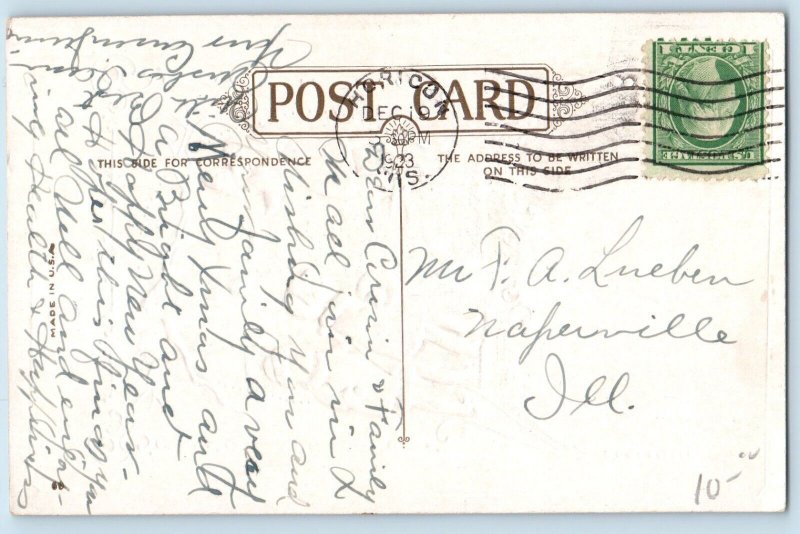 POST CARD
THIS SIDE FOR CORRESPONDENCE
THE ADDRESS TO BE WRITTEN
ON THIS SIDE
HORICON
DEC 19
M
1923
WIS.
1 CENT 1
U.S. POSTAGE
Mr F. A. Lueben
Naperville
Ill.
10-
MADE IN U.S.A.
Dear Cousin & Family
We all join in
Wishing you and
Family a very
Merry Xmas and
a Bright and
Happy New Year.
Hope this finds you
all Well and enjoy-
ing Health & Happiness
Your Cousin